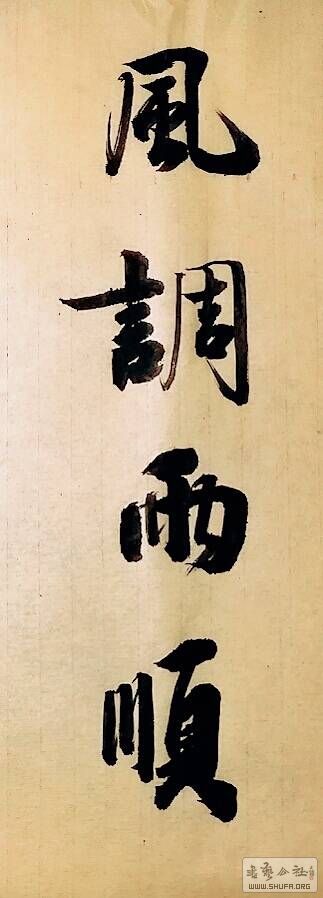 風調雨順
书艺公社
WWW.SHUFA.ORG